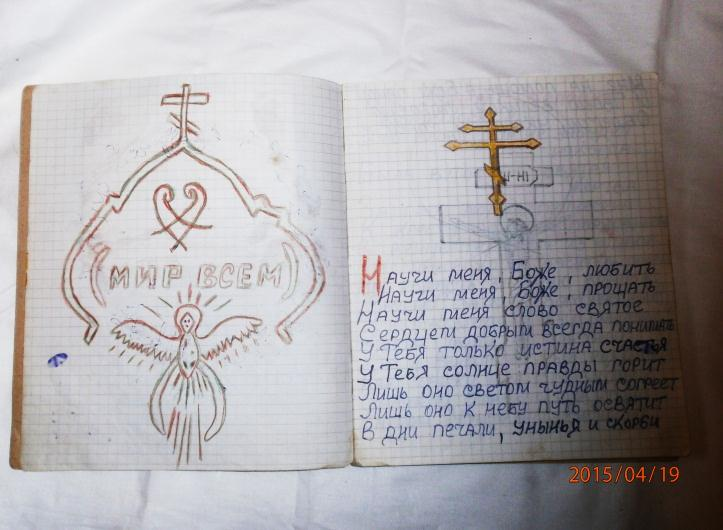 МИР ВСЕМ
Научи меня, Боже, любить
Научи меня, Боже, прощать
Научи меня слово святое
Сердцем добрым всегда понимать
У Тебя только истина счастья
У Тебя солнце правды горит
Лишь оно светом чудным согреет
Лишь оно к небу путь освятит
В дни печали, унынья и скорби
2015/04/19